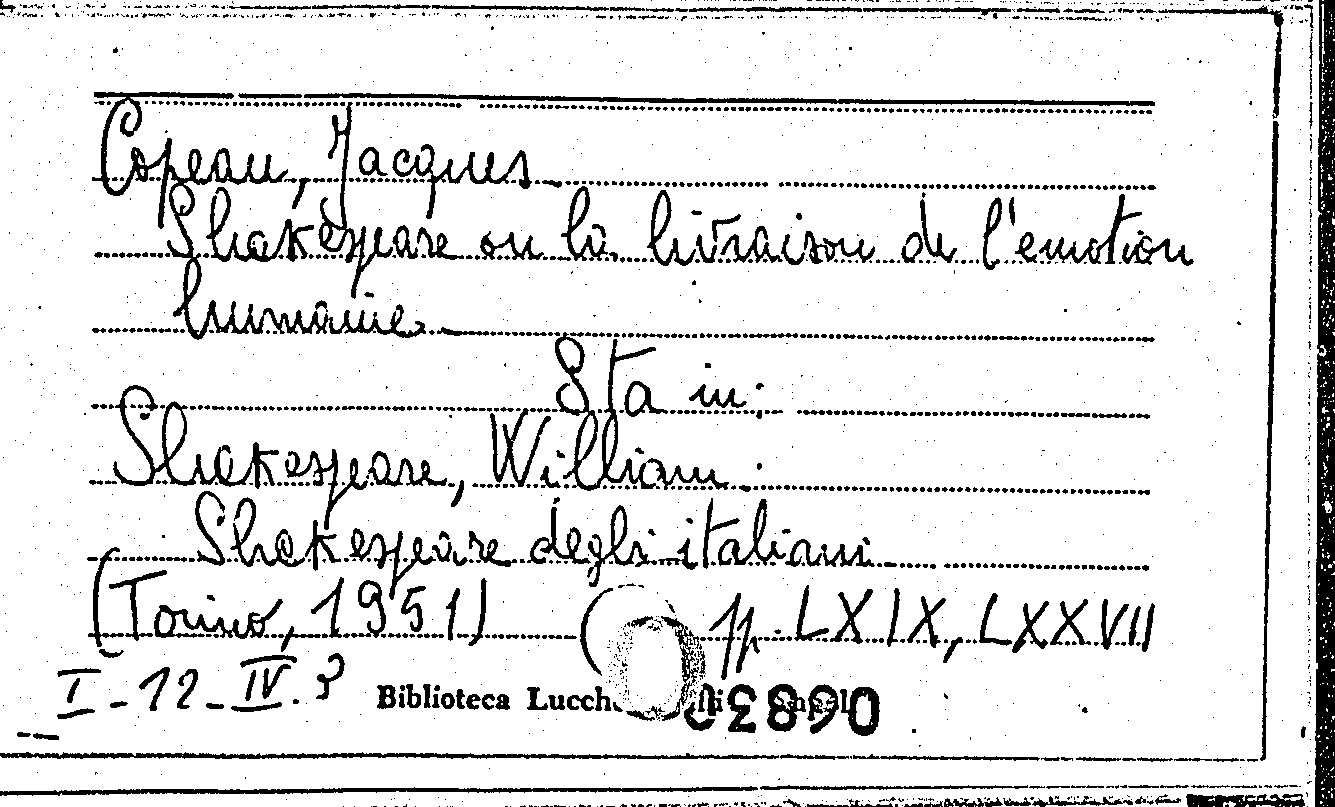 Copeau, Jacques
Shakespeare ou la livraison de l'emotion
humaine.
Sta in:
Shakespeare, William:
Shakespeare degli italiani
(Torino, 1951) pp. LXIX, LXXVII
I-12-IV.3
Biblioteca